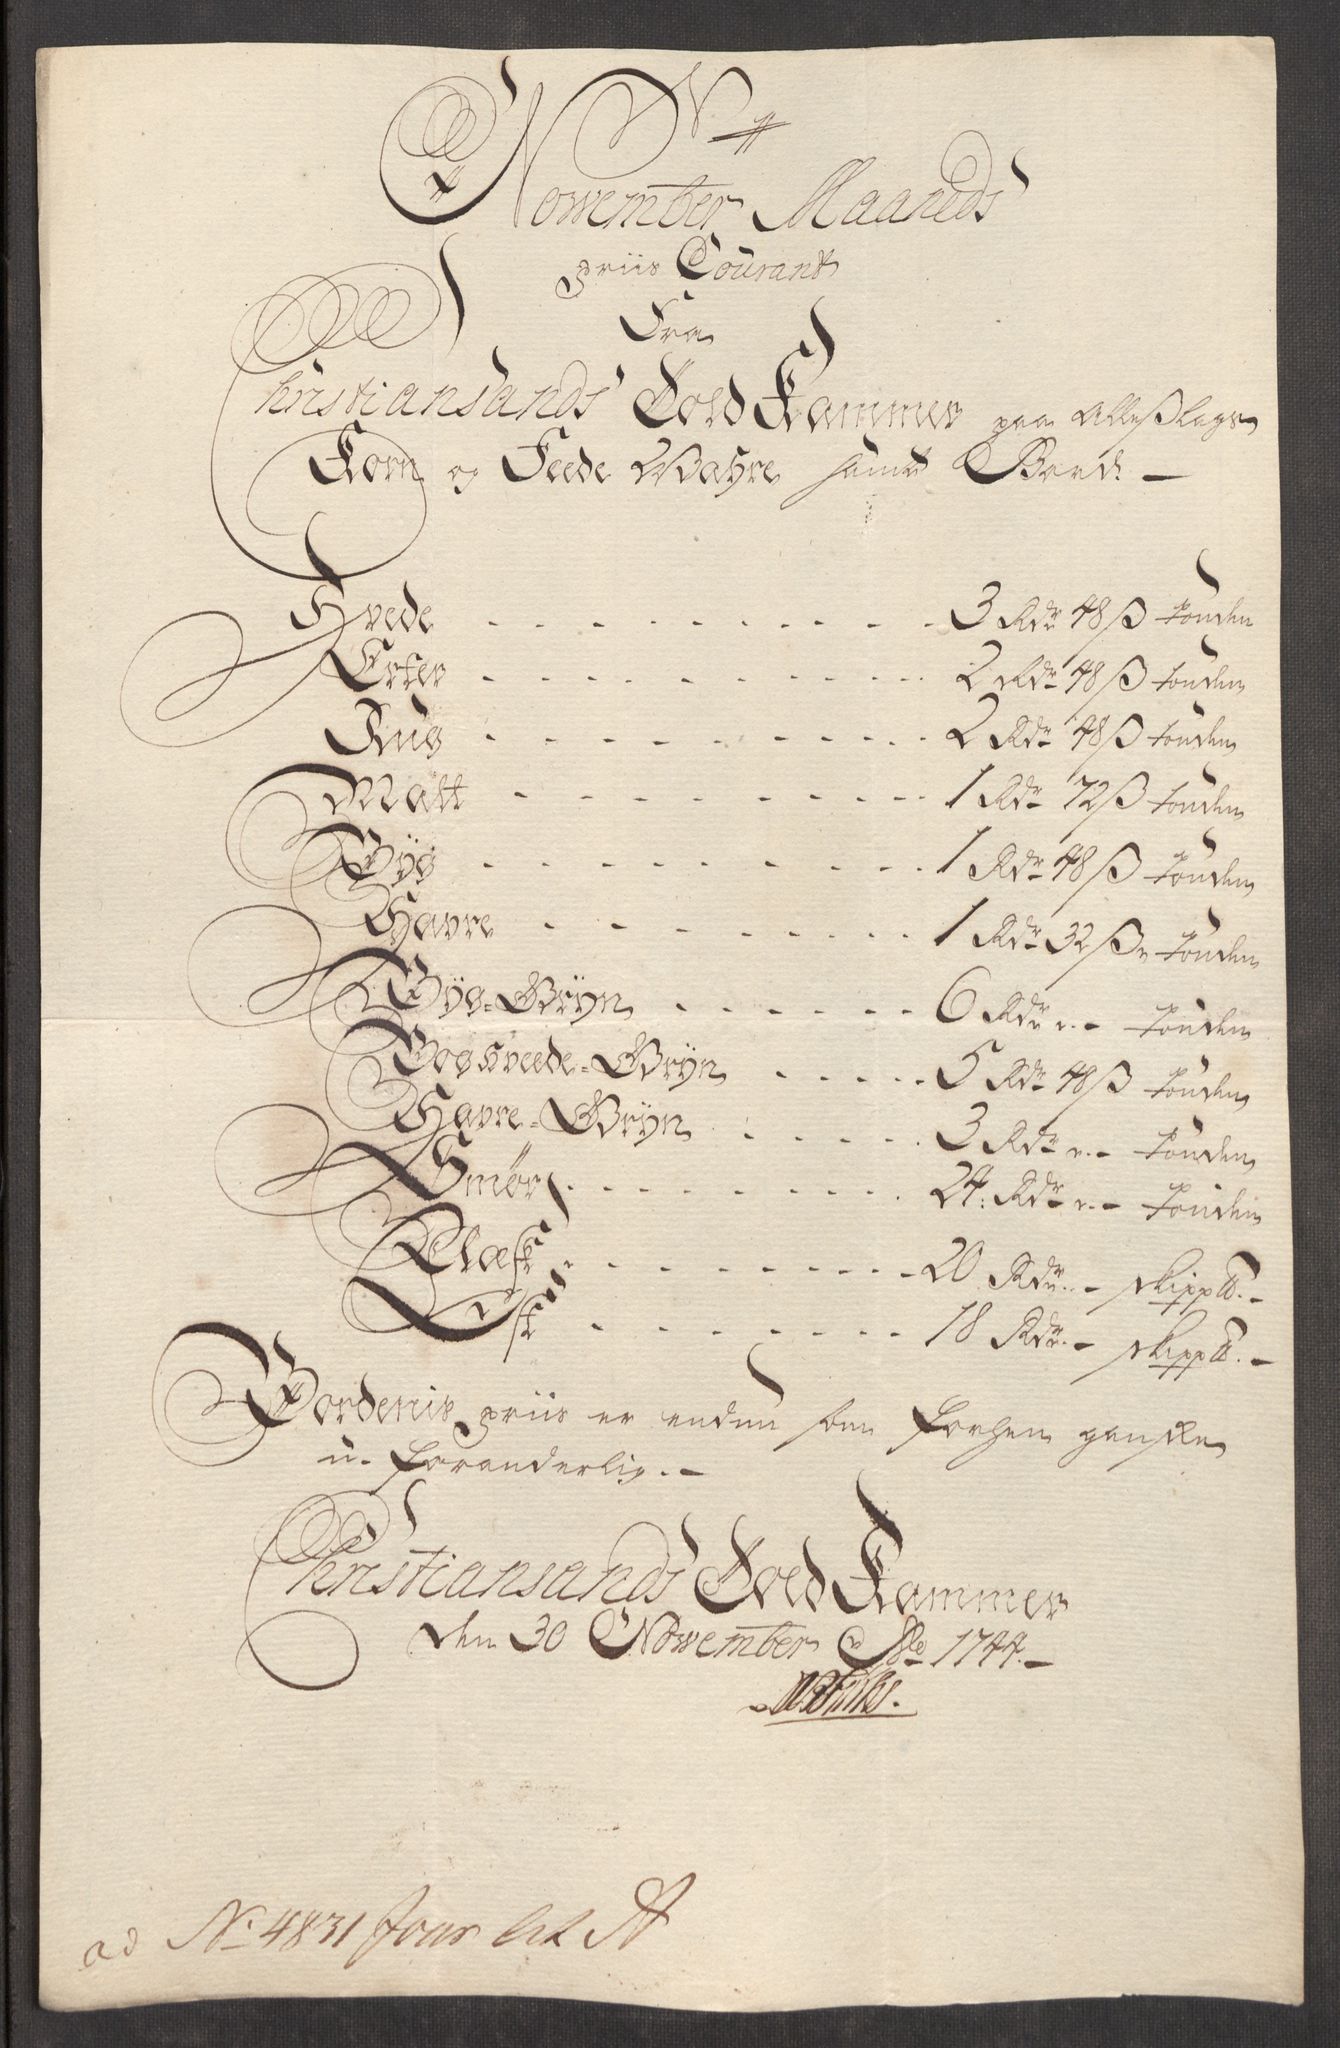 November Maaneds
priis Courant
Fra
Christiansands Told Kammer paa alleslags
Korn og Feede Wahre samt Bord. —
Hvede - - - - - - - - - - 3 Rdr 48 ß tønden
Erter - - - - - - - - - - 2 Rdr 48 ß tønden
Rug - - - - - - - - - - 2 Rdr 48 ß tønden
Malt - - - - - - - - - 1 Rdr 72 ß tønden
Byg - - - - - - - - - 1 Rdr 48 ß tønden
Havre - - - - - - - - - 1 Rdr 32 ß tønden
Byg-Gryn - - - - - - 6 Rdr " - tønden
Boghveede-Gryn - - - - - 5 Rdr 48 ß tønden
Havre-Gryn - - - - - 3 Rdr " - tønden
Smør - - - - - - - - - 24: Rdr " - tønden
Flæsk - - - - - - - - - 20 Rdr - skipp ℔. -
Ost - - - - - - - - 18 Rdr - skipp ℔. -
Bordenis priis er endnu som forhen ganske
u-foranderlig. -
Christiansands Told Kammer
den 30 November Ao 1744. -
ad No 4831 Jour lit A